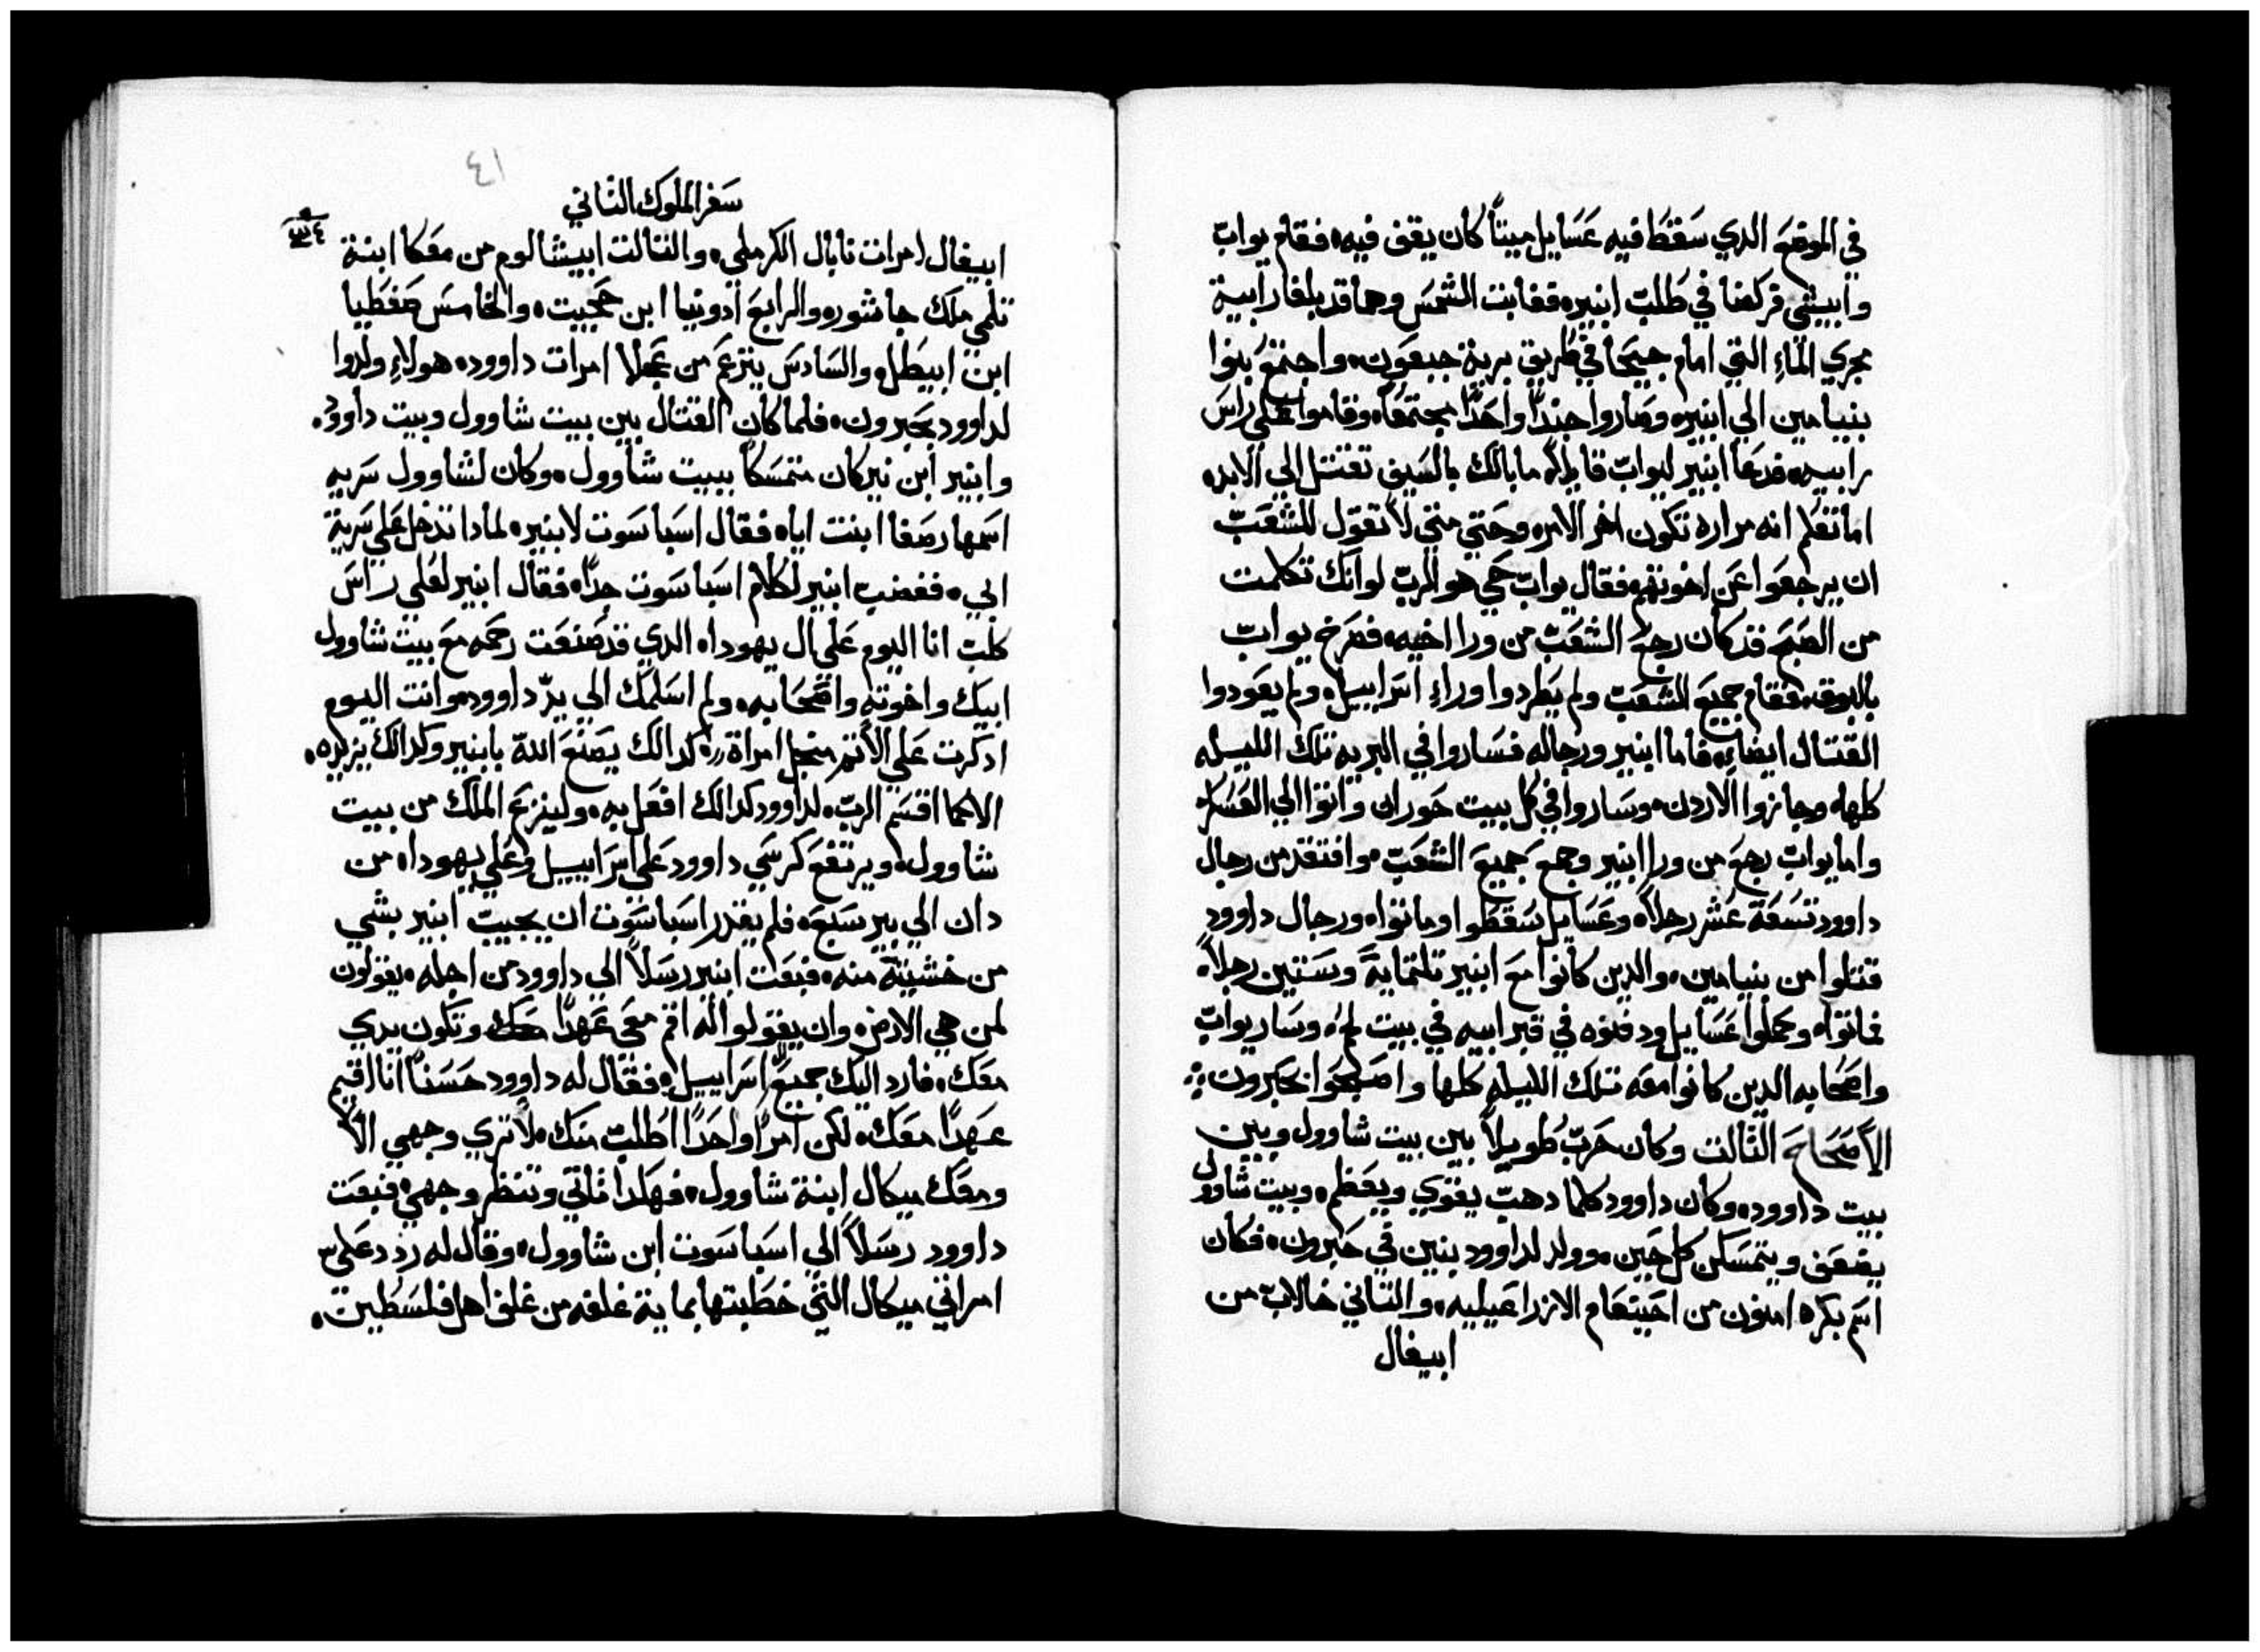 في الموضع الدي سقط فيه عسايل ميتاً كان يقف فيه فقام يواب
وابيشي فركضا في طلب ابنير فغابت الشمس وهما قد بلغا رابية
مجري الماء التي امام جيحا في طريق برية جبعون واجتمع بنوا
بنيامين الي ابنير وصاروا جنداً واحداً مجتمعاً وقاموا علي راس
رابيه فدعا ابنير ليواب قايلاً ما بالك بالسيف تقتل الي الابد
اما تعلم انه مراره تكون اخر الامر وحتي متي لا تقول للشعب
ان يرجعوا عن اخوتهم فقال يواب حي هو الرب لو انك تكلمت
من الصبح قد كان رجع الشعب من ورا اخيه فصرخ يواب
بالبوق فقام جميع الشعب ولم يطردوا وراء اسراييل ولم يعودوا
القتال ايضاً فاما ابنير ورجاله فساروا في البريه تلك الليله
كلها وجازوا الاردن وساروا في كل بيت حوران واتوا الي العسكر
واما يواب رجع من ورا ابنير وجمع جميع الشعب وافتقد من رجال
داوود تسعة عشر رجلاً وعسايل سقطوا وماتوا ورجال داوود
قتلوا من بنيامين والدين كانوا مع ابنير تلتماية وستين رجلاً
فماتوا وحملوا عسايل ودفنوه في قبر ابيه في بيت لحم وسار يواب
واصحابه الدين كانوا معه تلك الليله كلها واصبحوا بحبرون
الاصحاح الثالت وكان حرب طويلاً بين بيت شاوول وبين
بيت داوود وكان داوود كلما دهب يقوي ويعظم وبيت شاوول
يضعف ويتمسكن كل حين وولد لداوود بنين في حبرون فكان
اسم بكره امنون من احينعام الازراعيليه والتاني خالاب من
ابيغال
٤١
سفر الملوك التاني
ابيغال امرات نابال الكرملي والتالت ابيشالوم من معكا ابنة
تلمي ملك جاشور والرابع ادونيا ابن حجيت والخامس صفطيا
ابن ابيطل والسادس يتزعم من عجلا امرات داوود هولاء ولدوا
لداوود بحبرون فلما كان القتال بين بيت شاوول وبيت داوود
وابنير ابن نير كان متمسكاً ببيت شاوول وكان لشاوول سريه
اسمها رصفا ابنت اياه فقال اسباسوت لابنير لمادا تدخل علي سرية
ابي فغضب ابنير لكلام اسباسوت جداً فقال ابنير لعلي راس
كلب انا اليوم علي ال يهوداه الدي قد صنعت رحمه مع بيت شاوول
ابيك واخوته واصحابه ولم اسلمك الي يد داوود وانت اليوم
ادكرت علي الاتم من اجل امراة كدالك يصنع الله بابنير وكدالك يزيده
الا كما اقسم الرب لداوود كدالك افعل به ولينزع الملك من بيت
شاوول ويرتفع كرسي داوود علي اسراييل وعلي يهوداه من
دان الي بير سبع فلم يقدر اسباسوت ان يجيب ابنير بشي
من خشيته منه فبعت ابنير رسلاً الي داوود من اجله يقولون
لمن هي الارض وان يقولوا له اقم معي عهداً وتكون يدي
معك فارد اليك جميع اسراييل فقال له داوود حسناً انا اقيم
عهداً معك لكن امراً واحداً اطلب منك لا تري وجهي الا
ومعك ميكال ابنة شاوول فهكدا تاتي وتنظر وجهي فبعت
داوود رسلاً الي اسباسوت ابن شاوول وقال له رد علي
امراتي ميكال التي خطبتها بماية غلفه من غلف اهل فلسطين